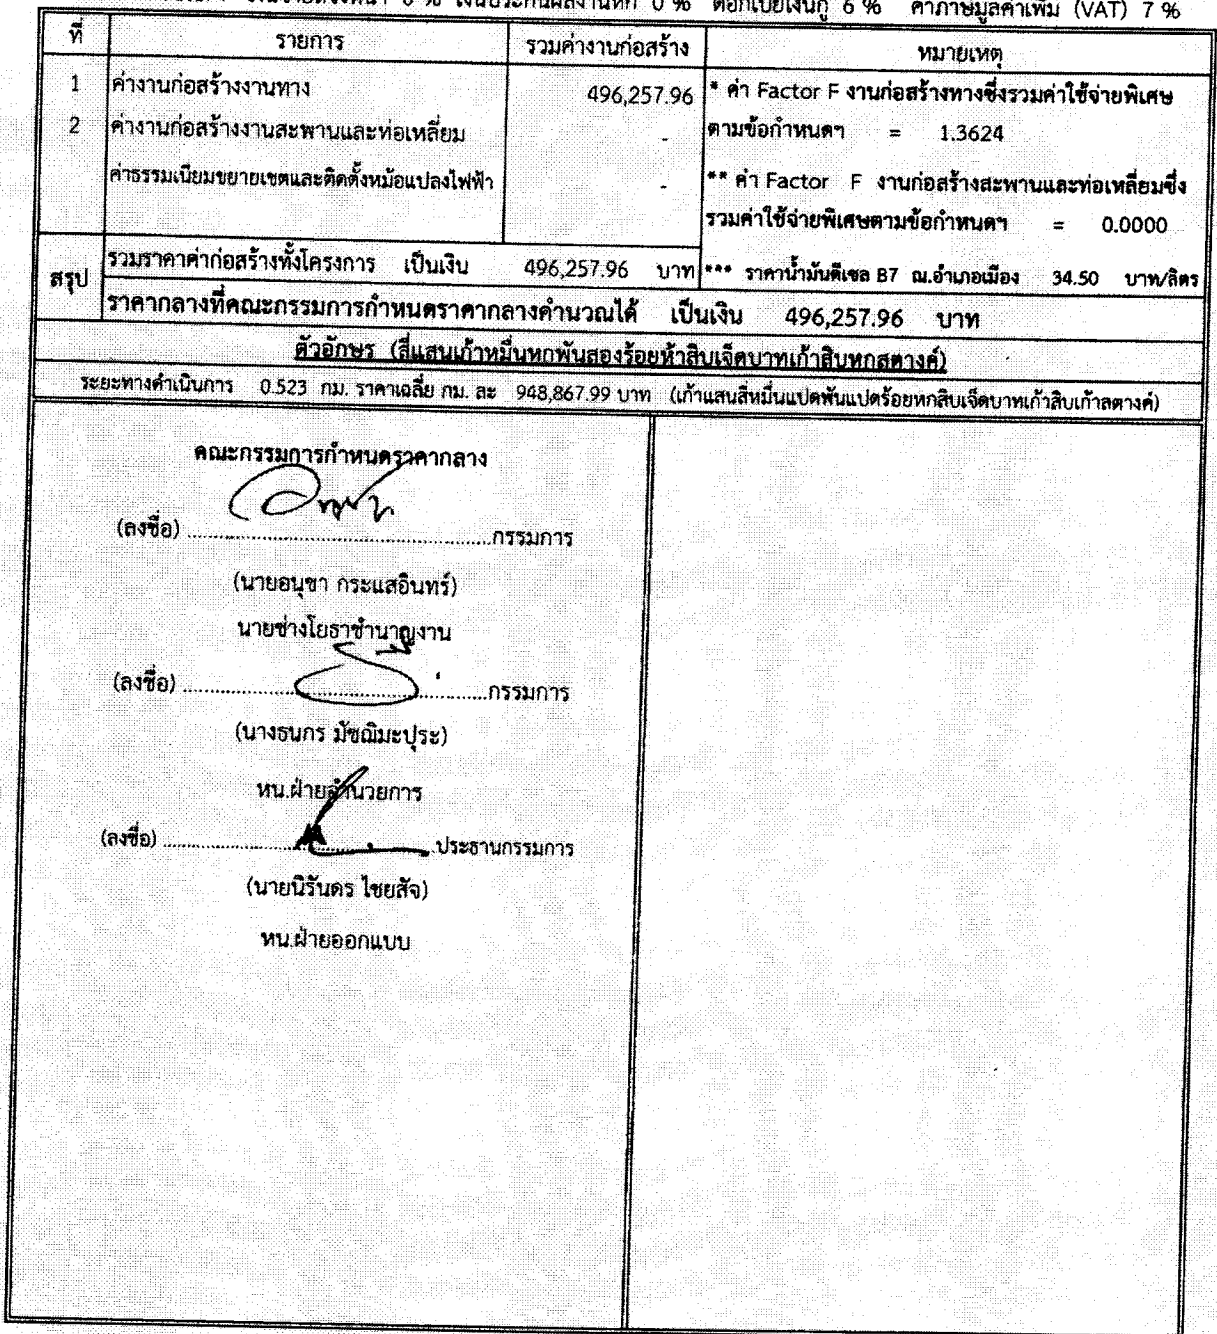 0 % ดอกเบี้ยเงินกู้ 6 % ค่าภาษีมูลค่าเพิ่ม (VAT) 7 %
ที่ รายการ รวมค่างานก่อสร้าง หมายเหตุ
1 ค่างานก่อสร้างงานทาง 496,257.96 * ค่า Factor F งานก่อสร้างทางซึ่งรวมค่าใช้จ่ายพิเศษ
2 ค่างานก่อสร้างงานสะพานและท่อเหลี่ยม - ตามข้อกำหนดฯ = 1.3624
ค่าธรรมเนียมขยายเขตและติดตั้งหม้อแปลงไฟฟ้า - ** ค่า Factor F งานก่อสร้างสะพานและท่อเหลี่ยมซึ่ง
รวมค่าใช้จ่ายพิเศษตามข้อกำหนดฯ = 0.0000
สรุป รวมราคาค่าก่อสร้างทั้งโครงการ เป็นเงิน 496,257.96 บาท *** ราคาน้ำมันดีเซล B7 ณ.อำเภอเมือง 34.50 บาท/ลิตร
ราคากลางที่คณะกรรมการกำหนดราคากลางคำนวณได้ เป็นเงิน 496,257.96 บาท
ตัวอักษร (สี่แสนเก้าหมื่นหกพันสองร้อยห้าสิบเจ็ดบาทเก้าสิบหกสตางค์)
ระยะทางดำเนินการ 0.523 กม. ราคาเฉลี่ย กม. ละ 948,867.99 บาท (เก้าแสนสี่หมื่นแปดพันแปดร้อยหกสิบเจ็ดบาทเก้าสิบเก้าสตางค์)
คณะกรรมการกำหนดราคากลาง
(ลงชื่อ) ........................................กรรมการ
(นายอนุชา กระแสอินทร์)
นายช่างโยธาชำนาญงาน
(ลงชื่อ) ........................................กรรมการ
(นางธนกร มัชฌิมะปุระ)
หน.ฝ่ายอำนวยการ
(ลงชื่อ) ........................................ประธานกรรมการ
(นายนิรันดร ไชยสัจ)
หน.ฝ่ายออกแบบ